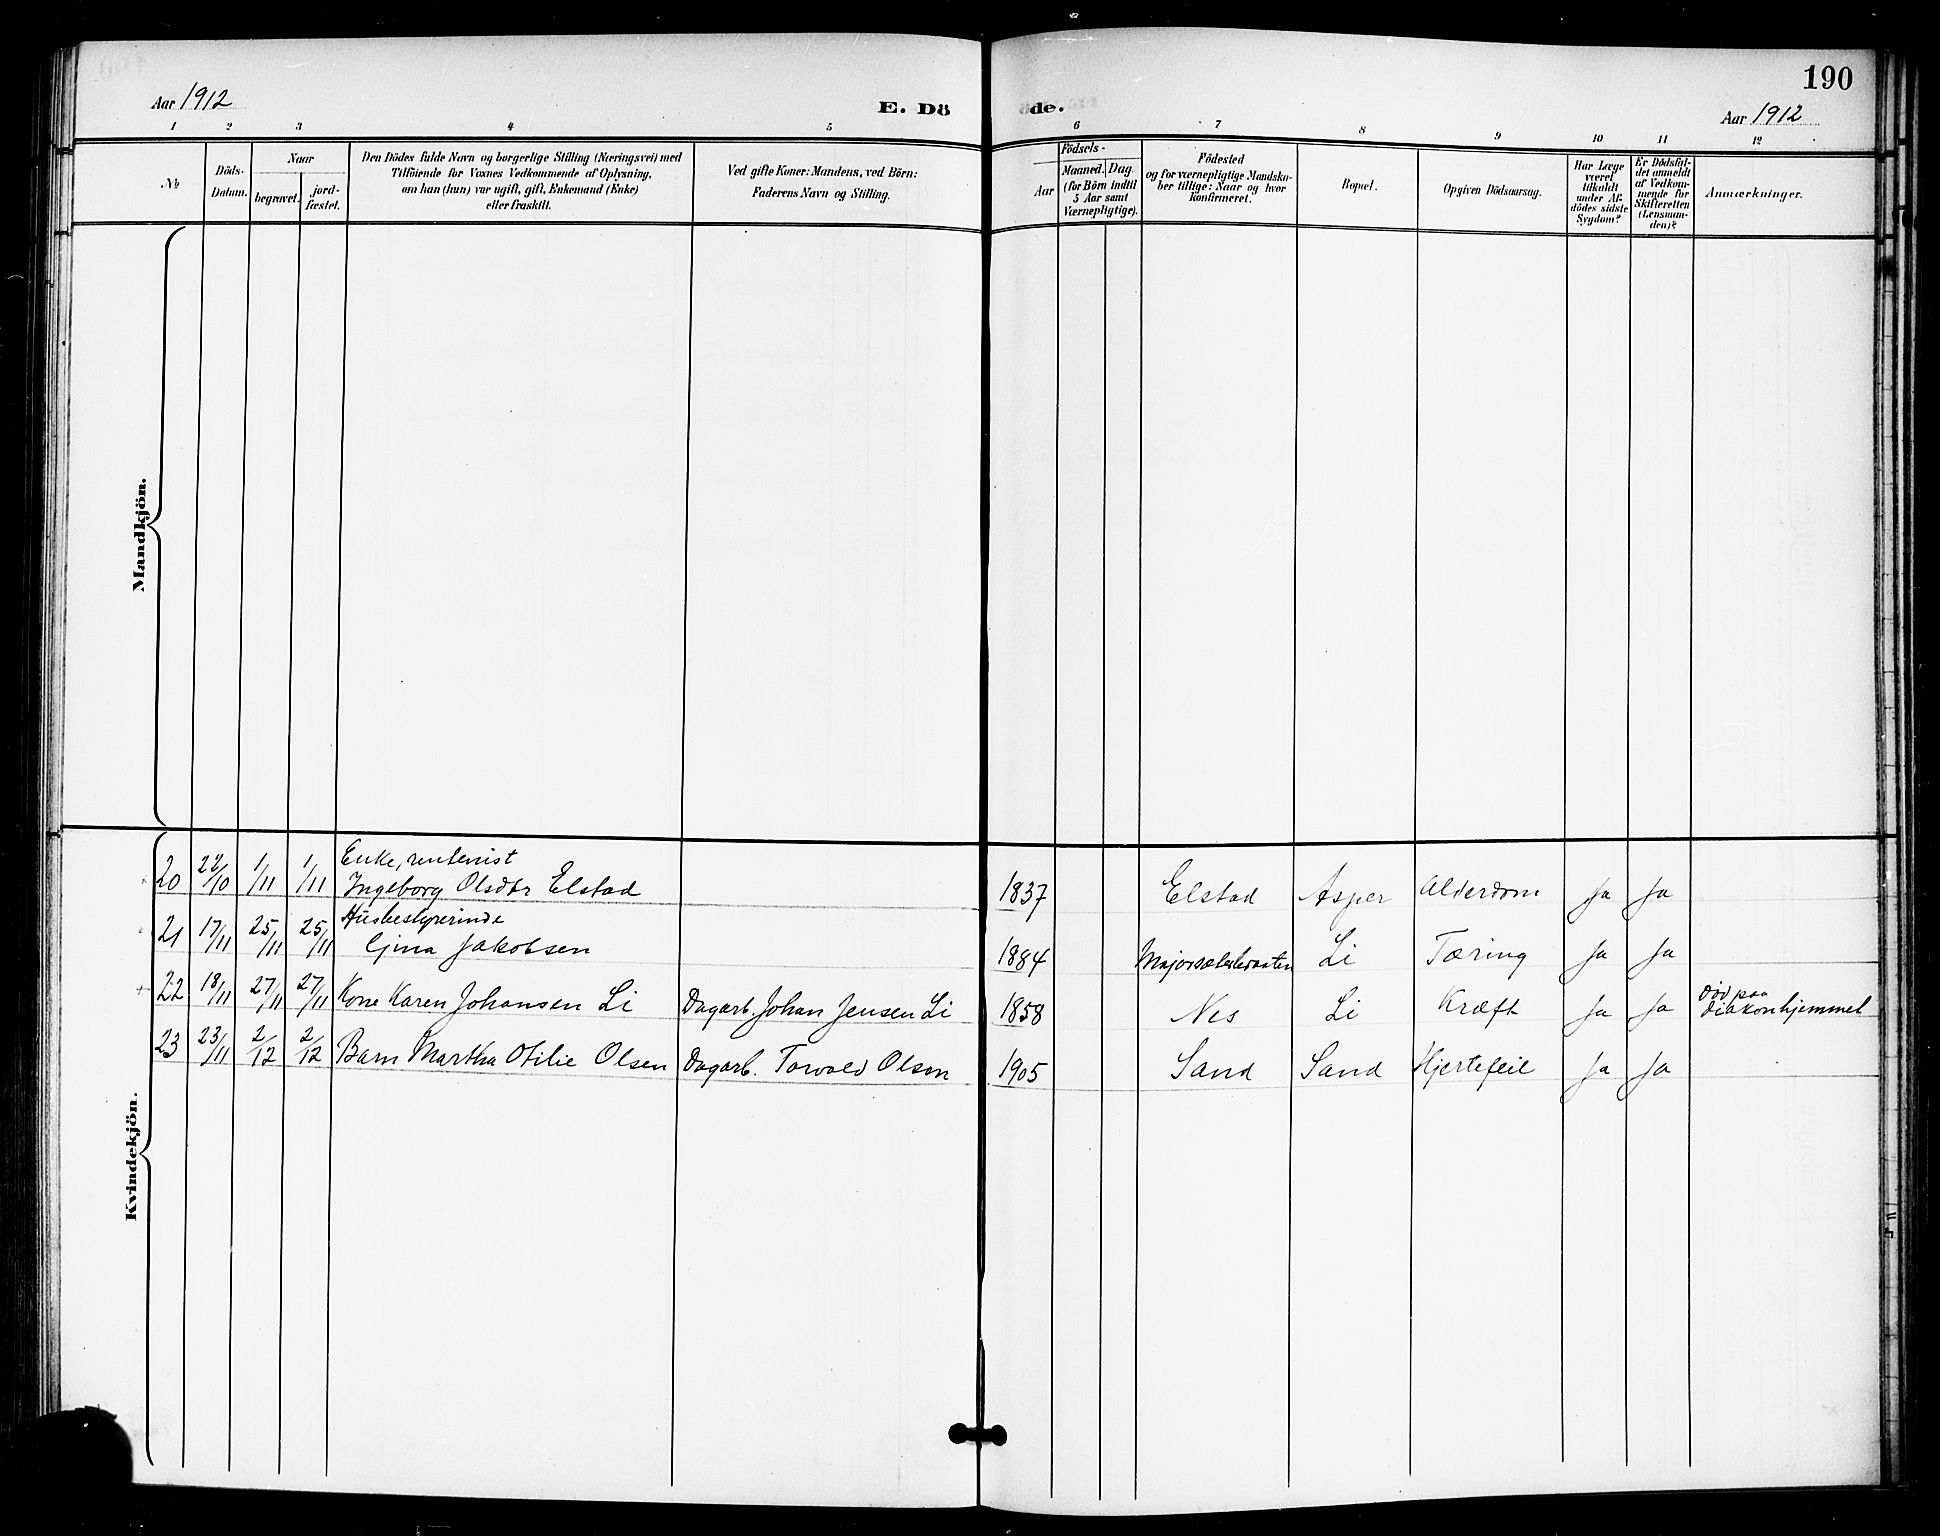 190
Aar 1912
E. Döde.
Aar 1912
1 2 3 4 5 6 7 8 9 10 11 12
No
Döds-
Datum.
Naar
begravet.
jord-
fæstet.
Den Dödes fulde Navn og borgerlige Stilling (Næringsvei) med
Tilföiende for Voxnes Vedkommende af Oplysning,
om han (hun) var ugift, gift, Enkemand (Enke)
eller fraskilt.
Ved gifte Koner: Mandens, ved Börn:
Faderens Navn og Stilling.
Födsels-
Aar
Maaned. Dag
(for Börn indtil
5 Aar samt
Værnepligtige).
Födested
og for værnepligtige Mandska-
ber tillige: Naar og hvor
konfirmeret.
Bopæl.
Opgiven Dödsaarsag.
Har Læge
været
tilkaldt
under Af-
dödes sidste
Sygdom?
Er Dödsfal-
det anmeldt
af Vedkom-
mende for
Skifteretten
(Lensman-
den)?
Anmærkninger.
Mandkjön.
Kvindekjön.
Enke, rentenist
20 22/10 1/11 1/11 Ingeborg Olsdtr Elstad 1837 Elstad Asper Alderdom Ja Ja
Husbestyrerinde
21 17/11 25/11 25/11 Gina Jakobsen 1884 Li Tæring Ja Ja
22 18/11 27/11 27/11 Kone Karen Johansen Li Dagarb. Johan Jensen Li 1858 Nes Li Kræft Ja Ja Död paa
diakonhjemmet
23 23/11 2/12 2/12 Barn Martha Otilie Olsen Dagarb. Torvald Olsen 1905 Sand Sand Hjertefeil Ja Ja